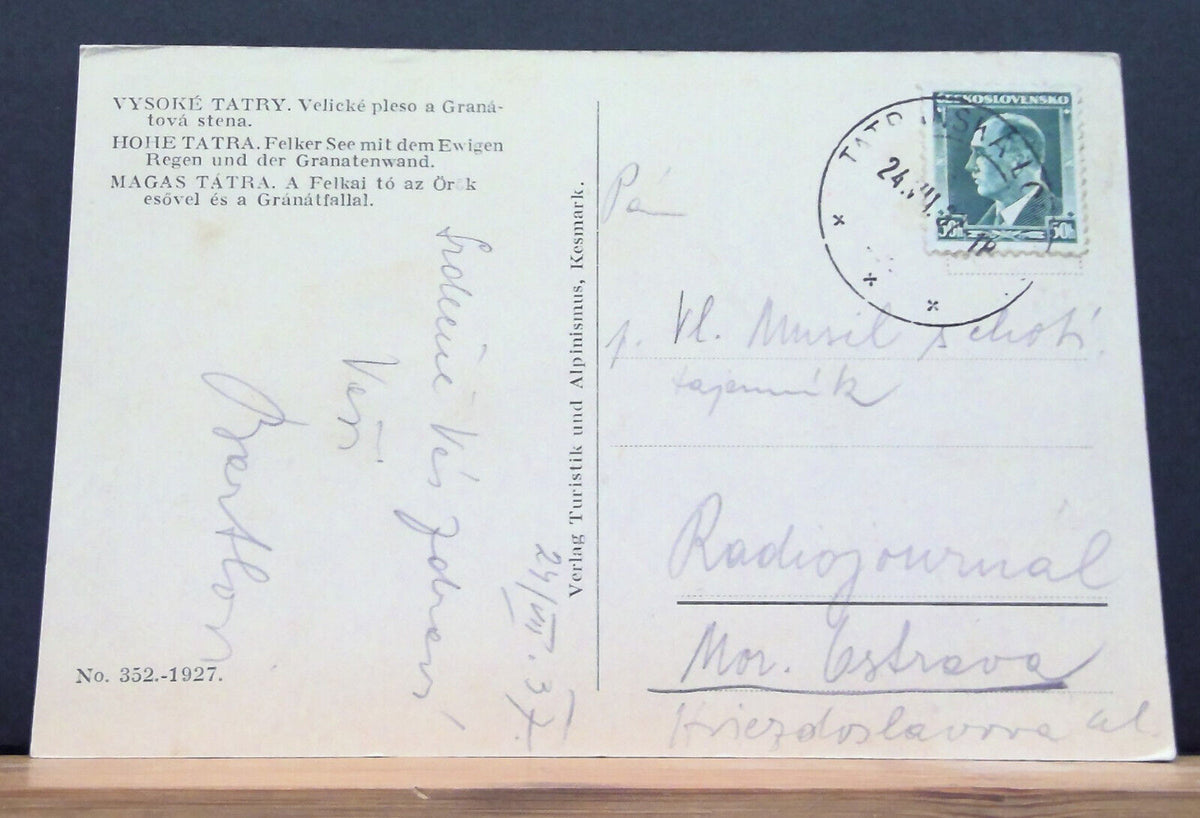 VYSOKÉ TATRY. Velické pleso a Graná-
tová stena.
HOHE TATRA. Felker See mit dem Ewigen
Regen und der Granatenwand.
MAGAS TÁTRA. A Felkai tó az Örök
esővel és a Gránátfallal.
Srdečně Vás zdraví
Váš
24/VII. 37.
No. 352.-1927.
Verlag Turistik und Alpinismus, Kesmark.
ČESKOSLOVENSKO
50h 50h
TATRANSKÁ LO
24.VII.
Pán
p. Vl. Musil
tajemník
Radiojournal
Mor. Ostrava
Hviezdoslavova ul.